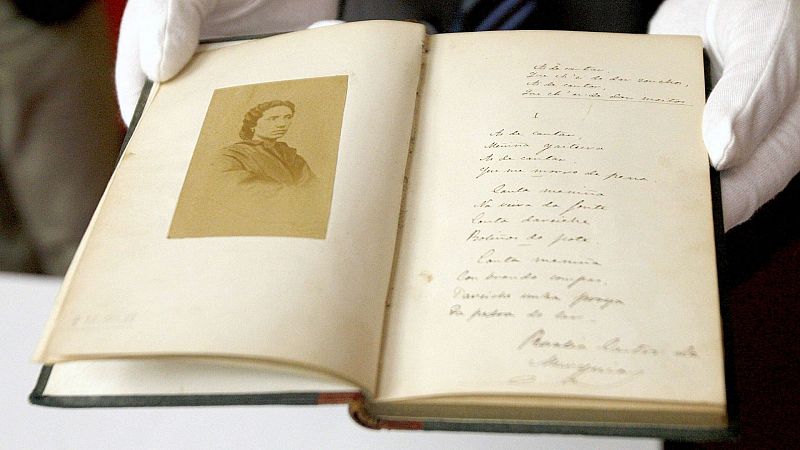 As de cantar,
Que ch'ei de dar zonchos,
As de cantar,
Que ch'ei de dar moitos
I
As de cantar,
Meniña gaiteira
As de cantar
Que me morro de pena.
Canta meniña
Na veira da fonte
Canta dareiche
Boliños do pote
Canta meniña
Con brando compas,
Dareiche unha proya
Da pedra do lar.
Rosalia Castro de
Murguia